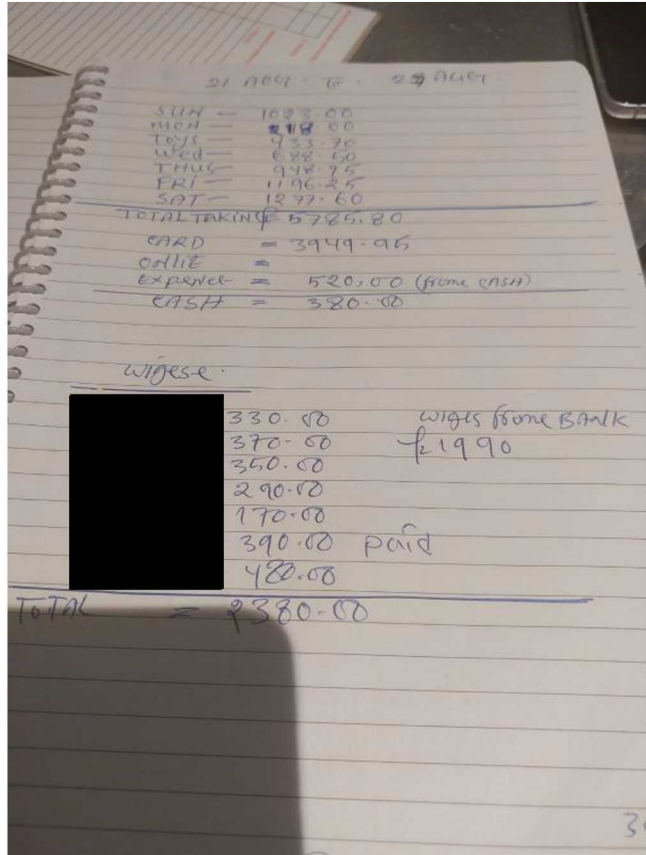 21 AUGT. TO. 27 AUGT.
SUN — 1023.00
MON — 218.00
TOYS — 433.70
Wed — 688.50
THUS — 948.75
FRI — 1196.25
SAT — 1277.60
TOTAL TAKING 5785.80
CARD = 3949.95
ONLIE =
Expences = 520.00 (frome CASH)
CASH = 380.00
wigese.
330.00 wigis frome BANK
370-00 £1990
350.00
290.00
170.00
390.00 paid
480.00
TOTAL = 2380-00